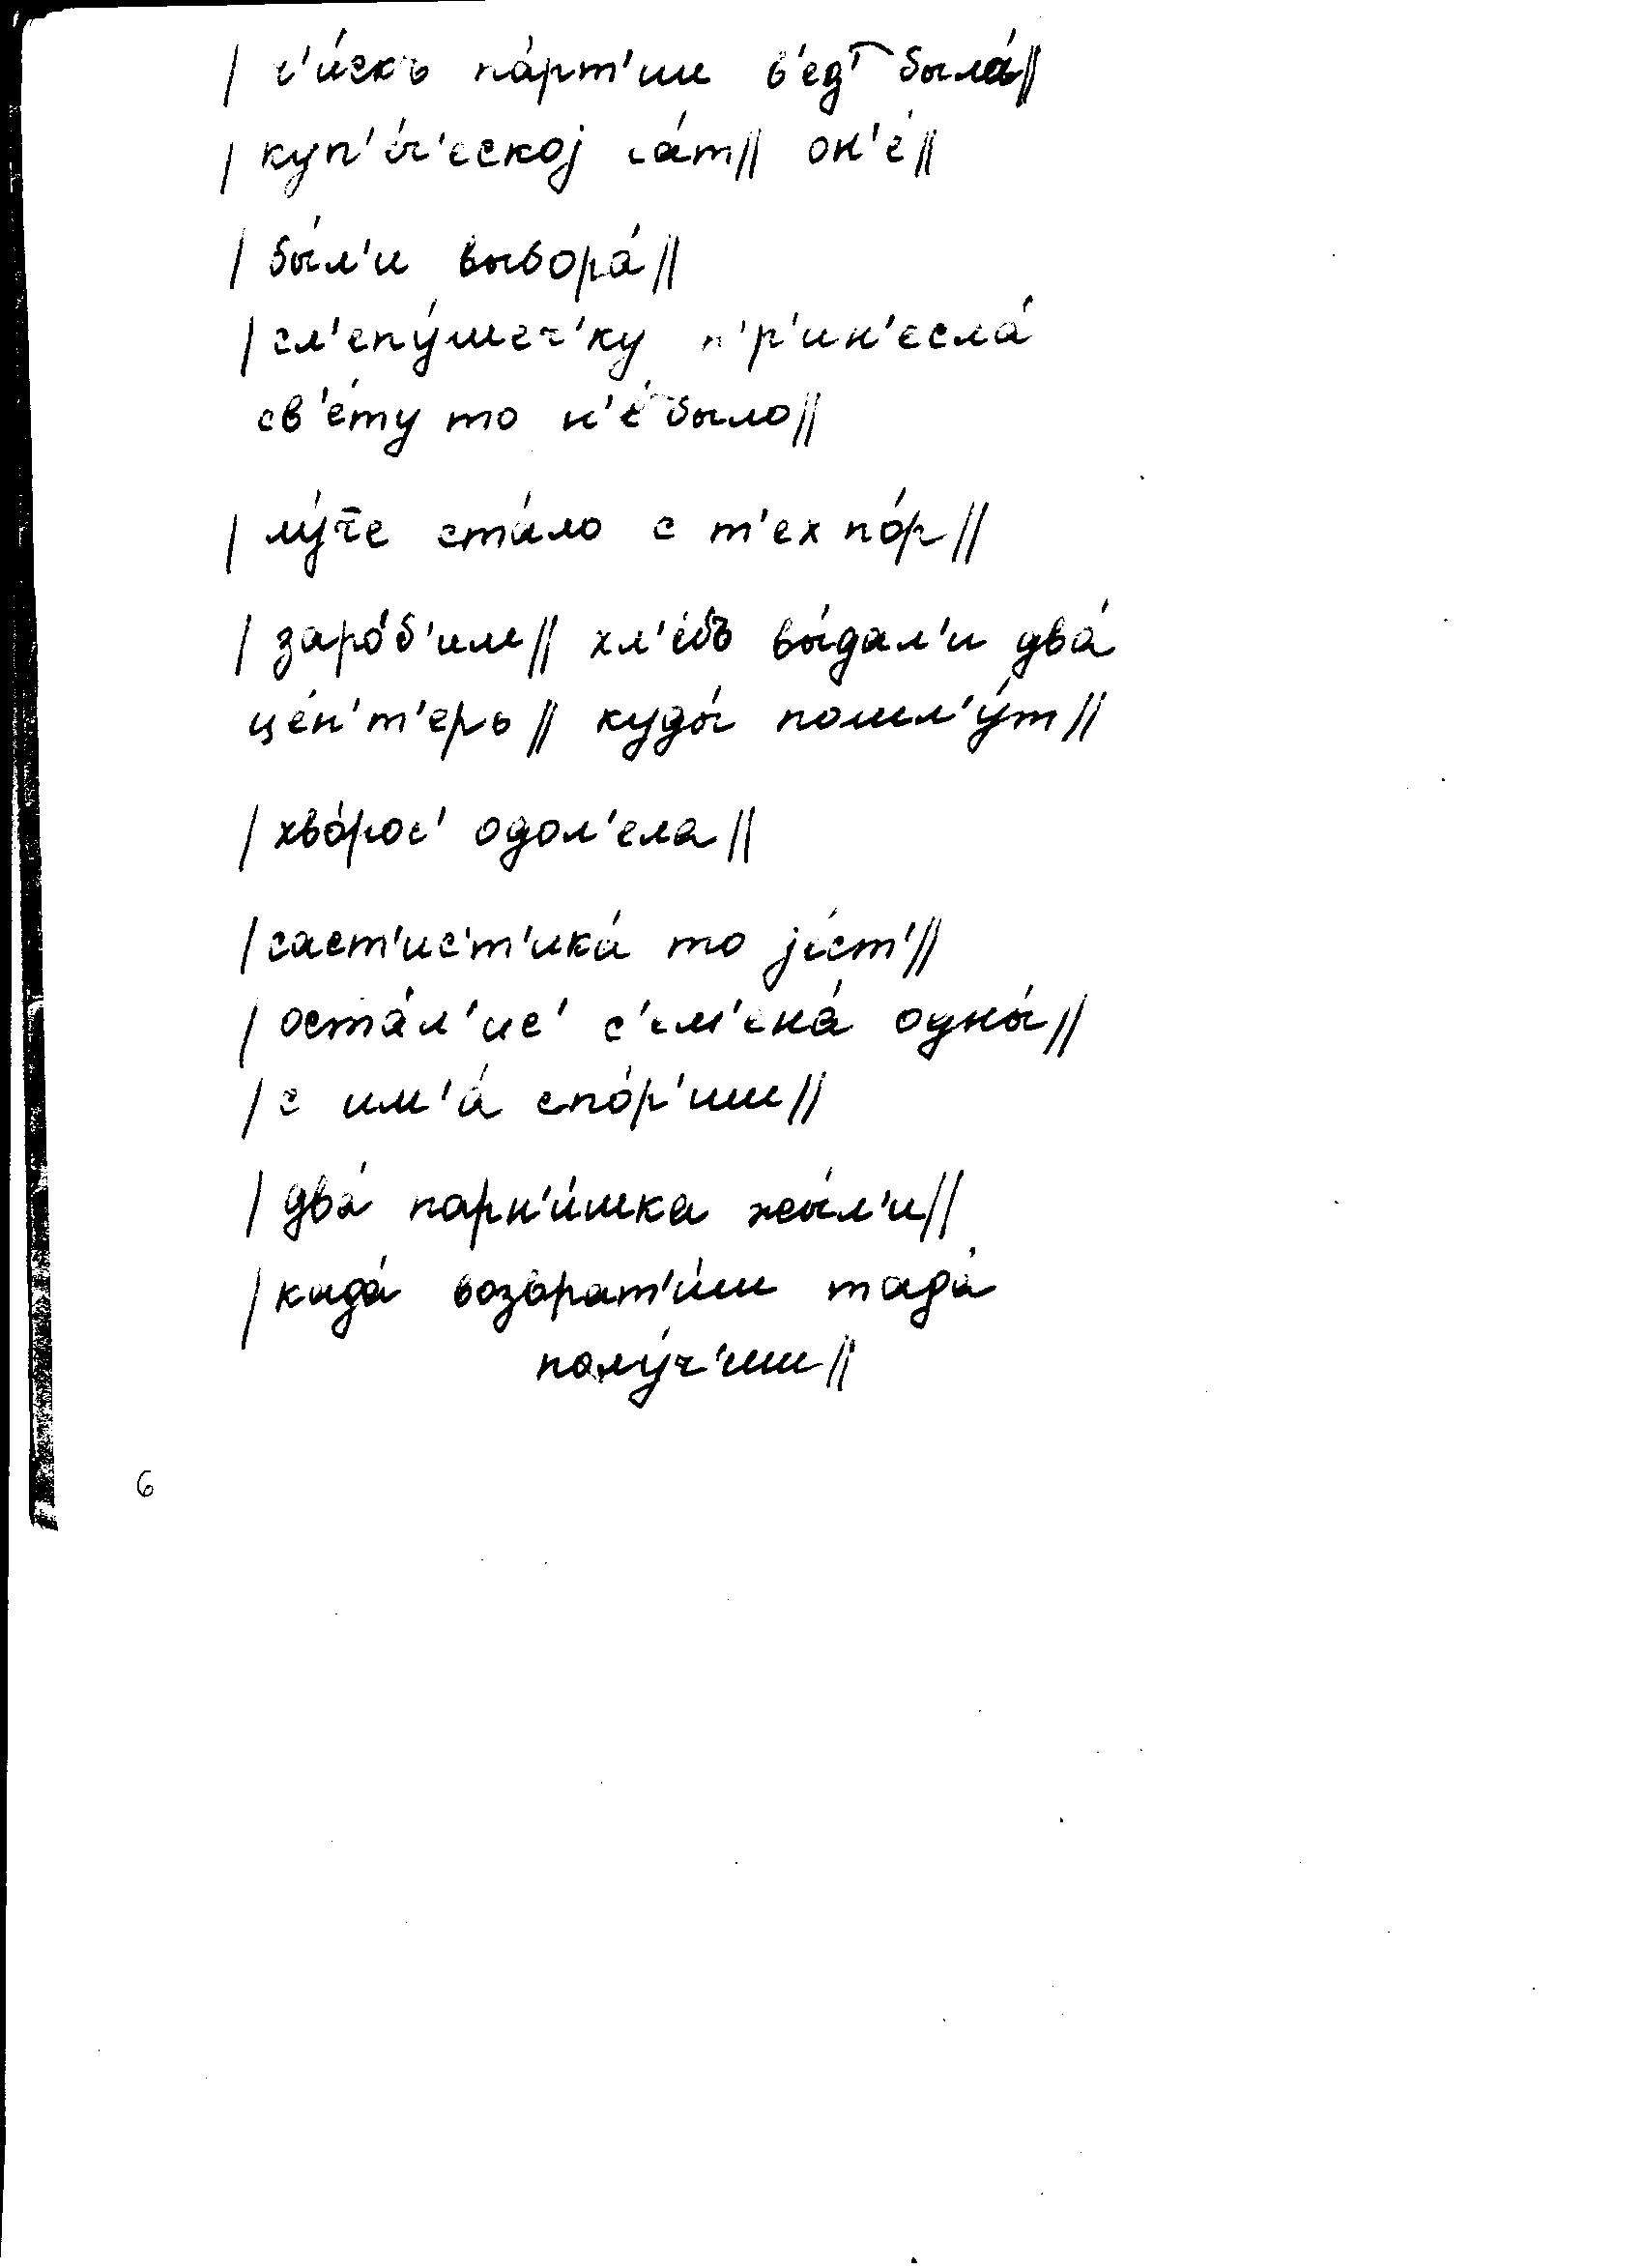 | ч'и́скъ па́рт'ии в'едʼ была́ ||
| куп'е́ч'еској са́т || он'е́ ||
| бы́л'и выбора́ ||
| сл'епу́шеч'ку п'р'ин'есла́
св'е́ту то н'е́ было ||
| лу́че ста́ло с т'ех по́р ||
| заро́б'им || хл'е́бъ вы́дал'и два́
це́н'т'еръ || куды́ пошл'у́т ||
| хво́рос' одол'ела ||
| саст'ис'т'ика́ то је́ст' ||
| оста́л'ис' с'ем'ена́ одны́ ||
| с им'а́ спо́р'иш ||
| два́ парн'и́шка жы́л'и ||
| када́ возврат'и́ш тада́
полу́ч'иш ||
6